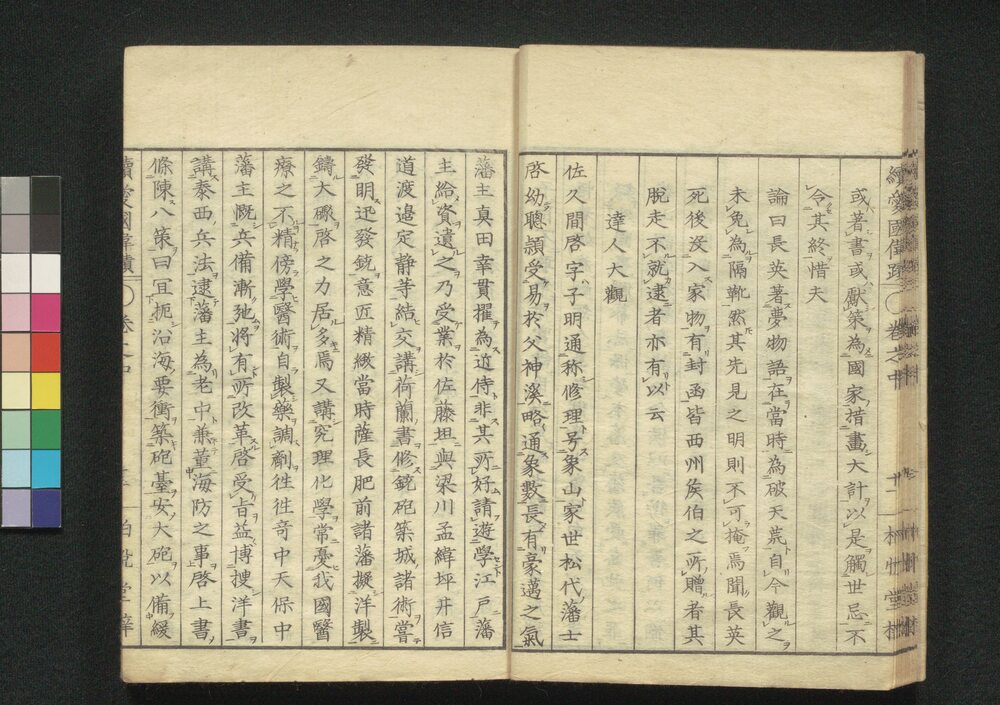 或著書或獻策為國家措畫大計以是觸世忌不
令其終惜夫
論曰長英著夢物語在當時為破天荒自今觀之
未免為隔靴然其先見之明則不可掩焉聞長英
死後沒入家物有封函皆西州侯伯之所贈者其
脫走不就逮者亦有以云
達人大觀
佐久間啓字子明通称修理号象山家世松代藩士
啓幼聰頴受易於父神溪略通象數長有豪邁之氣
藩主真田幸貫擢為近侍非其所好請遊學江戸藩
主給資遣之乃受業於佐藤坦與梁川孟緯坪井信
道渡邉定静等結交講荷蘭書修銃砲築城諸術嘗
發明迅發銃意匠精緻當時薩長肥前諸藩擬洋製
鑄大礮啓之力居多焉又講究理化學常憂我國醫
療之不精傍學醫術自製藥調劑徃徃竒中天保中
藩主慨兵備漸弛將有所改革啓受旨益博捜洋書
講泰西兵法逮藩主為老中兼董海防之事啓上書
條陳八策曰宜扼沿海要衝築砲臺安大砲以備緩